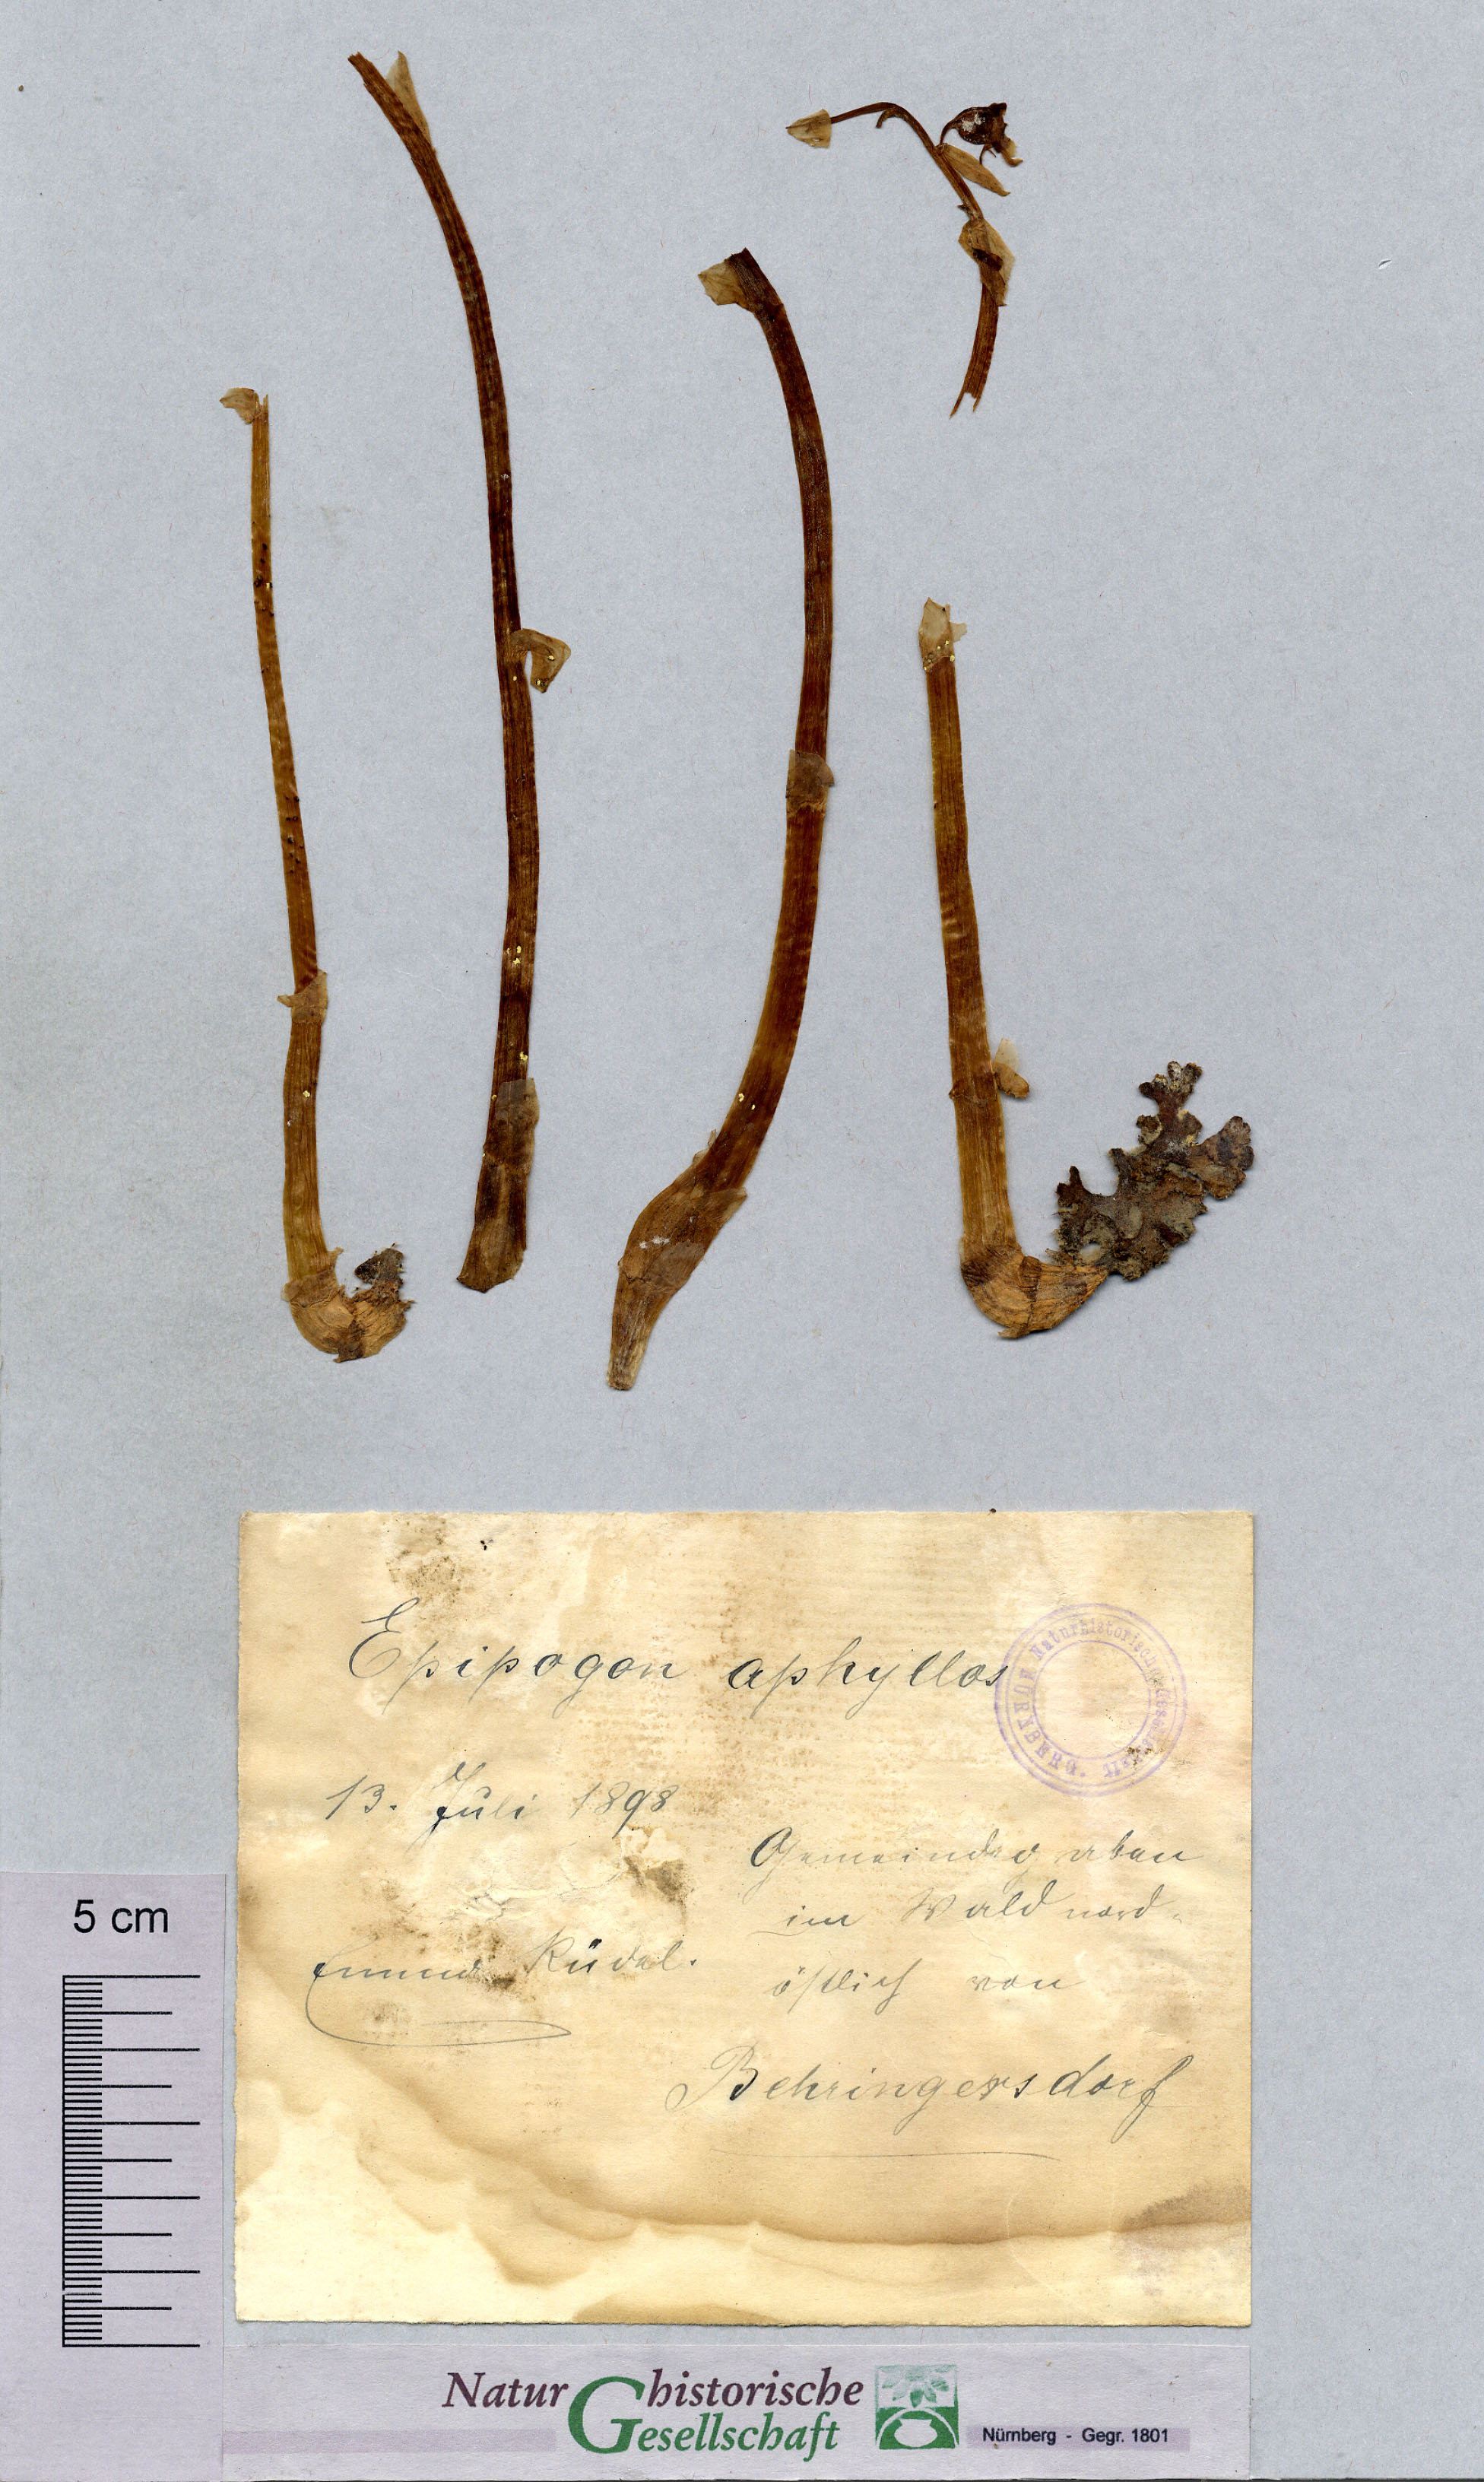 Epipogon aphyllos
Naturhistorische Gesellschaft NÜRNBERG
13. Juli 1898
Gemeindegraben
im Wald nord-
östlich von
Behringersdorf
Rüdel.
5 cm
Naturhistorische
Gesellschaft
Nürnberg - Gegr. 1801